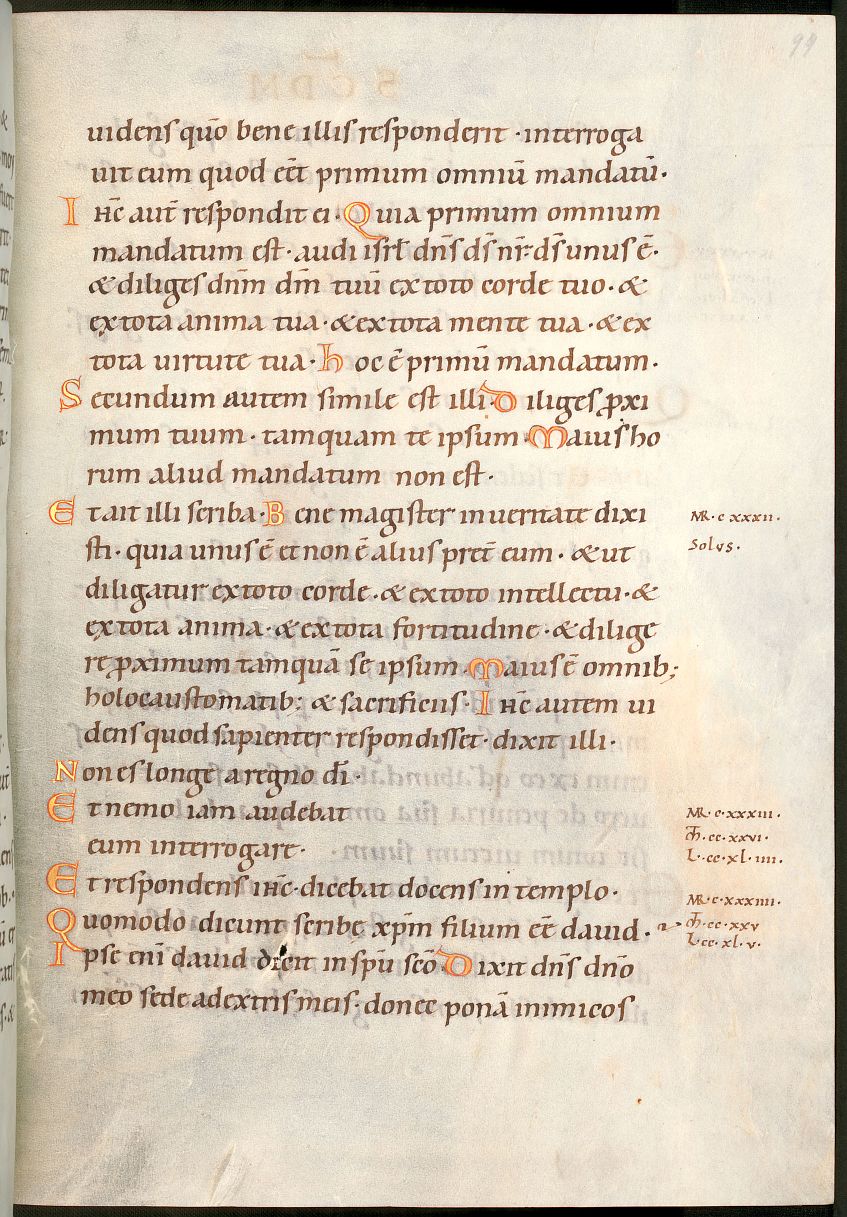 99
uidens qūo bene illis responderit · interroga
uit eum quod eēt primum omniū mandatū·
Ihc̄ aut̄ respondit ei · Quia primum omnium
mandatum est · audi isrł dn̄s ds̄ nr̄ · ds̄ unus ē·
& diliges dn̄m dm̄ tuū ex toto corde tuo · &
ex tota anima tua · & ex tota mente tua · & ex
tota uirtute tua · hoc ē primū mandatum·
Secundum autem simile est illi · Diliges ꝓxi
mum tuum · tamquam te ipsum · Maius ho
rum aliud mandatum non est·
Et ait illi scriba · Bene magister in ueritate dixi
sti · quia unus ē et non ē alius pret̄ eum · & ut
diligatur ex toto corde · & ex toto intellectu · &
ex tota anima · & ex tota fortitudine · & dilige
re ꝓximum tamquā se ipsum · Maius ē omnib;
holocaustomatib; & sacrificiis · Ihc̄ autem ui
dens quod sapienter respondisset · dixit illi·
Non es longe a regno dī·
Et nemo iam audebat
eum interrogare·
Et respondens ihc̄ · dicebat docens in templo·
Quomodo dicunt scribę xp̄m filium eē̄ dauid·
Ipse eni̅ dauid dicit in sp̄u sc̄o · Dixit dn̄s dn̄o
meo sede a dextris meis · donec ponā inimicos
MR · c xxxii ·
Solus ·
MR · c · xxxiii ·
M̄ · cc · xxvi ·
L · cc · xl · iiii ·
MR · c · xxxiiii ·
M̄ · cc · xxv
L · cc · xl · v ·